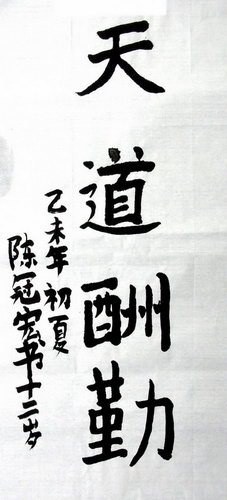 天道酬勤
乙未年初夏
陈冠宏书十二岁